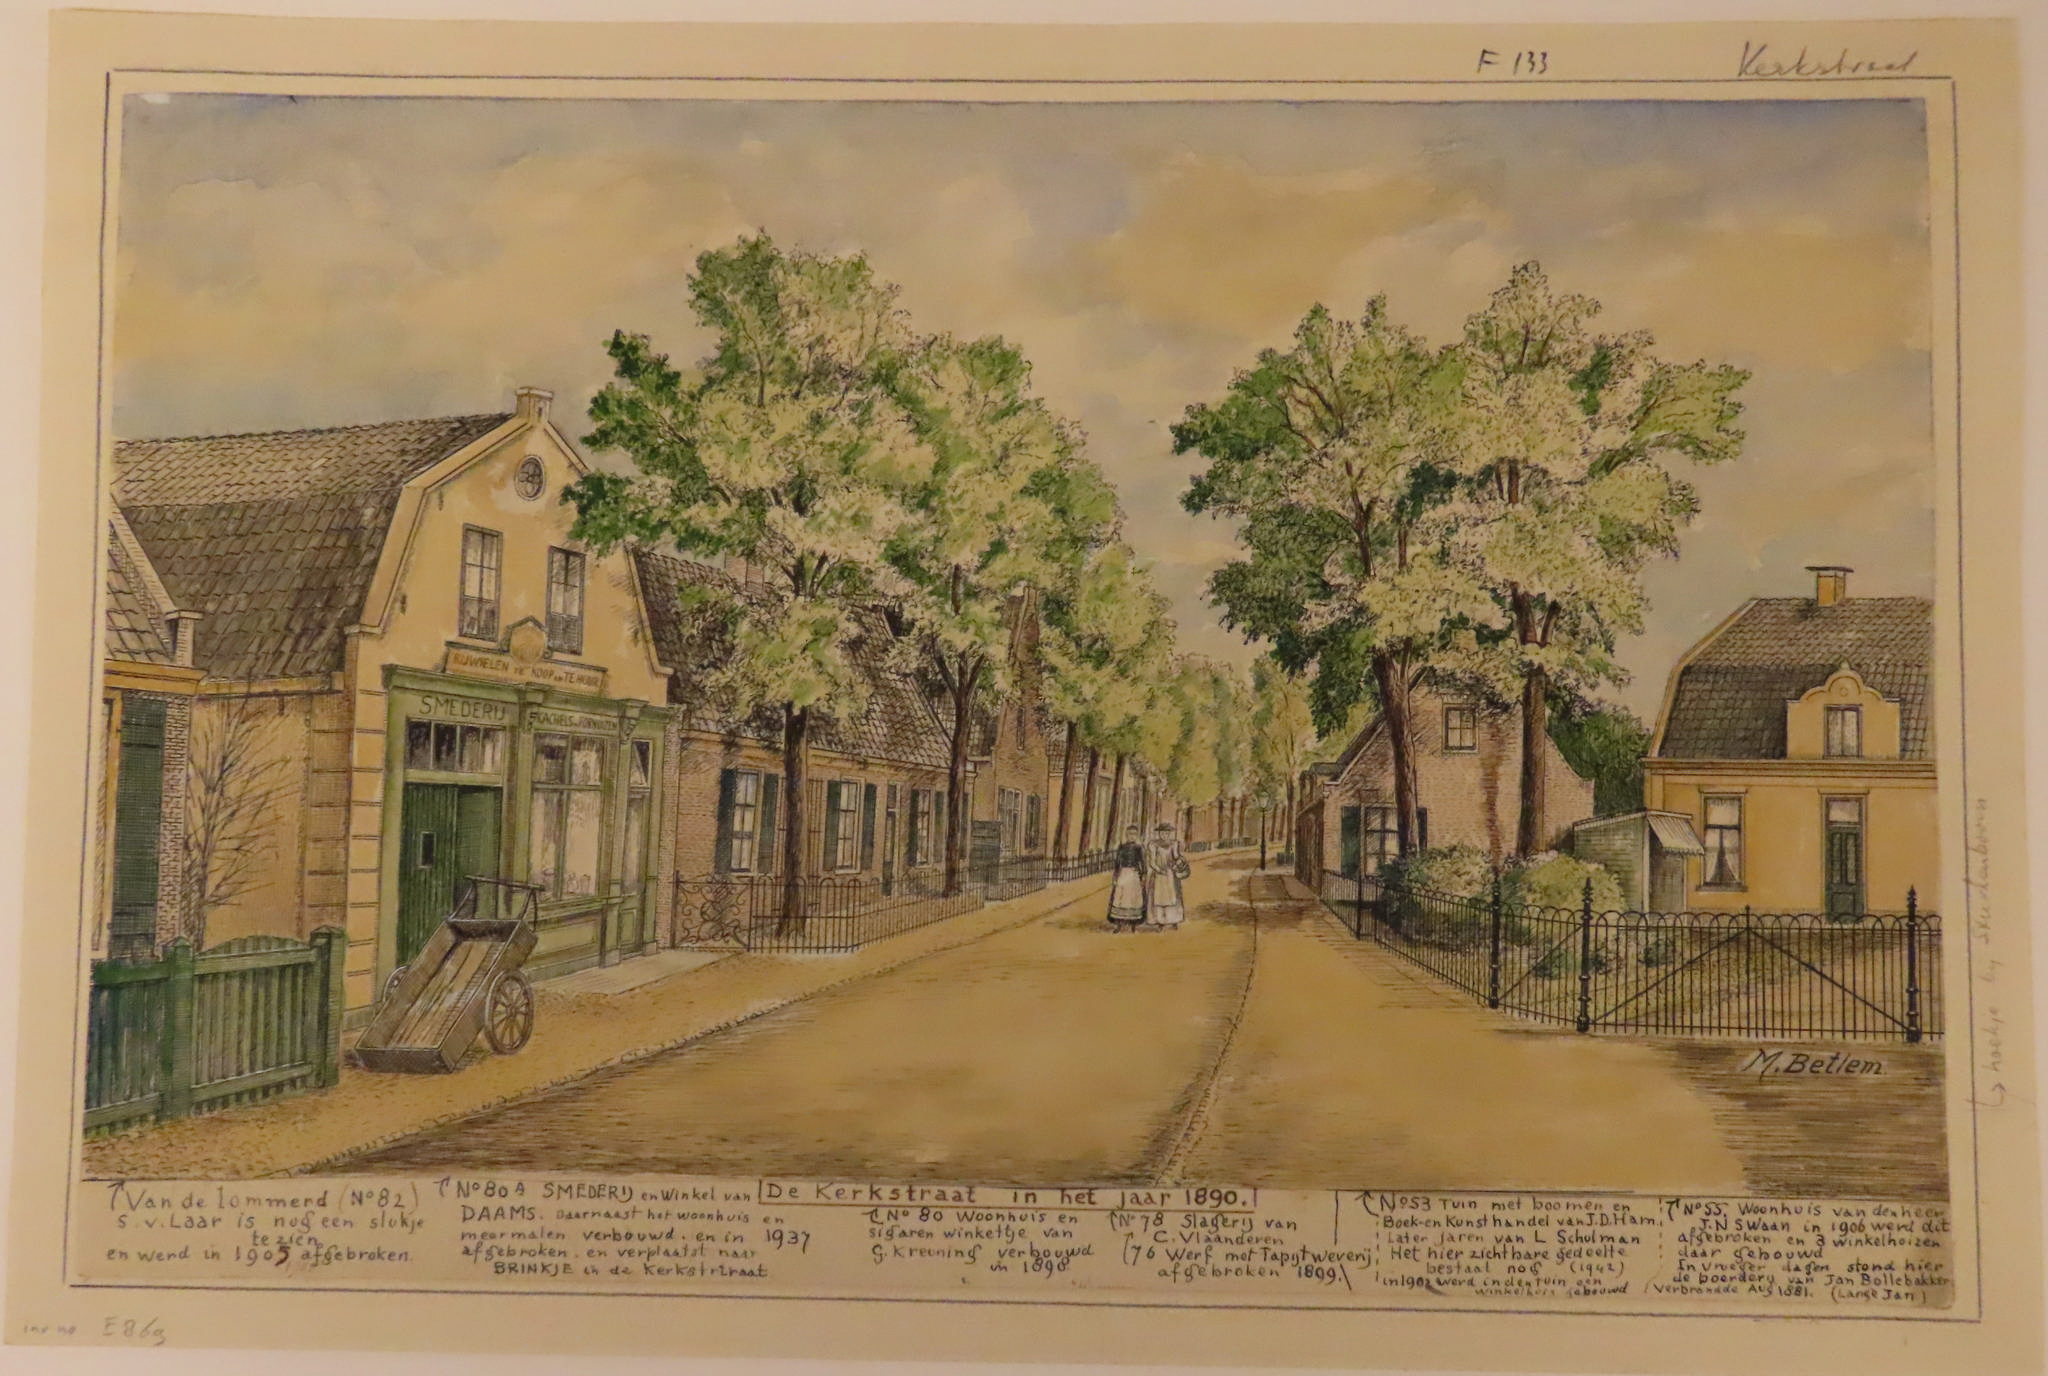 F 133
Kerkstraat
RIJWIELEN TE KOOP en TE HUUR
SMEDERIJ
KACHELS en FORNUIZEN
M. Betlem
Van de lommerd (No 82)
S. v. Laar is nog een stukje
te zien
en werd in 1905 afgebroken.
No 80A SMEDERIJ en winkel van
DAAMS. Daarnaast het woonhuis en
meermalen verbouwd. en in 1937
afgebroken. en verplaatst naar
BRINKJE in de Kerkstraat
De Kerkstraat in het jaar 1890.
No 80 Woonhuis en
sigaren winkeltje van
G. Kreuning verbouwd
in 1898
No 78 Slagerij van
C. Vlaanderen
76 Werf met Tapijtweverij
afgebroken 1899.
No 53 Tuin met boomen en
Boek-en Kunsthandel van J.D. Ham.
Later jaren van L Schulman
Het hier zichtbare gedeelte
bestaat nog (1942)
in 1902 werd in den Tuin een
winkelhuis gebouwd
No 55. Woonhuis van den heer
J.N Swaan in 1906 werd dit
afgebroken en 3 winkelhuizen
daar gebouwd
In vroeger dagen stond hier
de boerderij van Jan Bollebakker
verbrandde Aug 1881. (Lange Jan)
inv no E 869